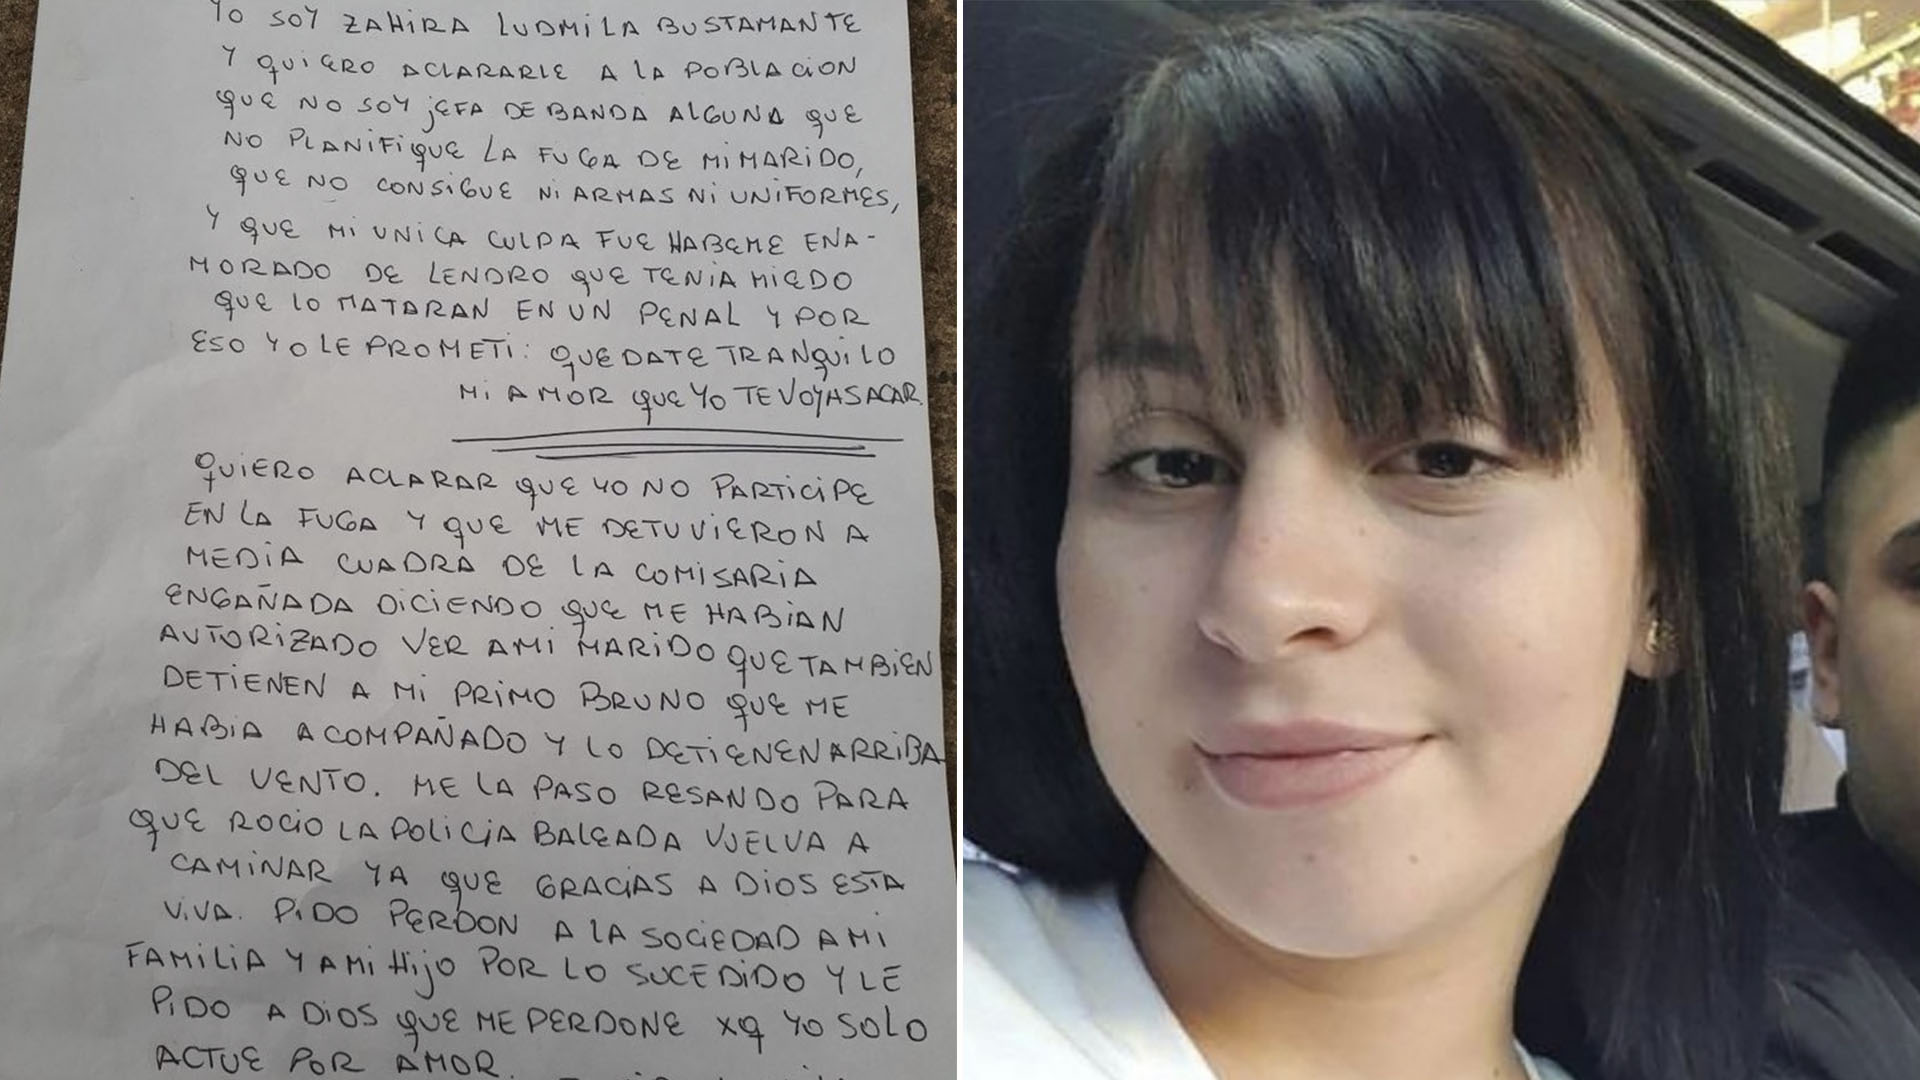 YO SOY ZAHIRA LUDMILA BUSTAMANTE
Y QUIERO ACLARARLE A LA POBLACION
QUE NO SOY JEFA DE BANDA ALGUNA QUE
NO PLANIFIQUE LA FUGA DE MI MARIDO,
QUE NO CONSIGUE NI ARMAS NI UNIFORMES,
Y QUE MI UNICA CULPA FUE HABEME ENA-
MORADO DE LENDRO QUE TENIA MIEDO
QUE LO MATARAN EN UN PENAL Y POR
ESO YO LE PROMETI: QUEDATE TRANQUILO
MI AMOR QUE YO TE VOY A SACAR.
QUIERO ACLARAR QUE YO NO PARTICIPE
EN LA FUGA Y QUE ME DETUVIERON A
MEDIA CUADRA DE LA COMISARIA
ENGAÑADA DICIENDO QUE ME HABIAN
AUTORIZADO VER A MI MARIDO QUE TAMBIEN
DETIENEN A MI PRIMO BRUNO QUE ME
HABIA ACOMPAÑADO Y LO DETIENEN ARRIBA
DEL VENTO. ME LA PASO RESANDO PARA
QUE ROCIO LA POLICIA BALEADA VUELVA A
CAMINAR YA QUE GRACIAS A DIOS ESTA
VIVA. PIDO PERDON A LA SOCIEDAD A MI
FAMILIA Y A MI HIJO POR LO SUCEDIDO Y LE
PIDO A DIOS QUE ME PERDONE XQ YO SOLO
ACTUE POR AMOR.